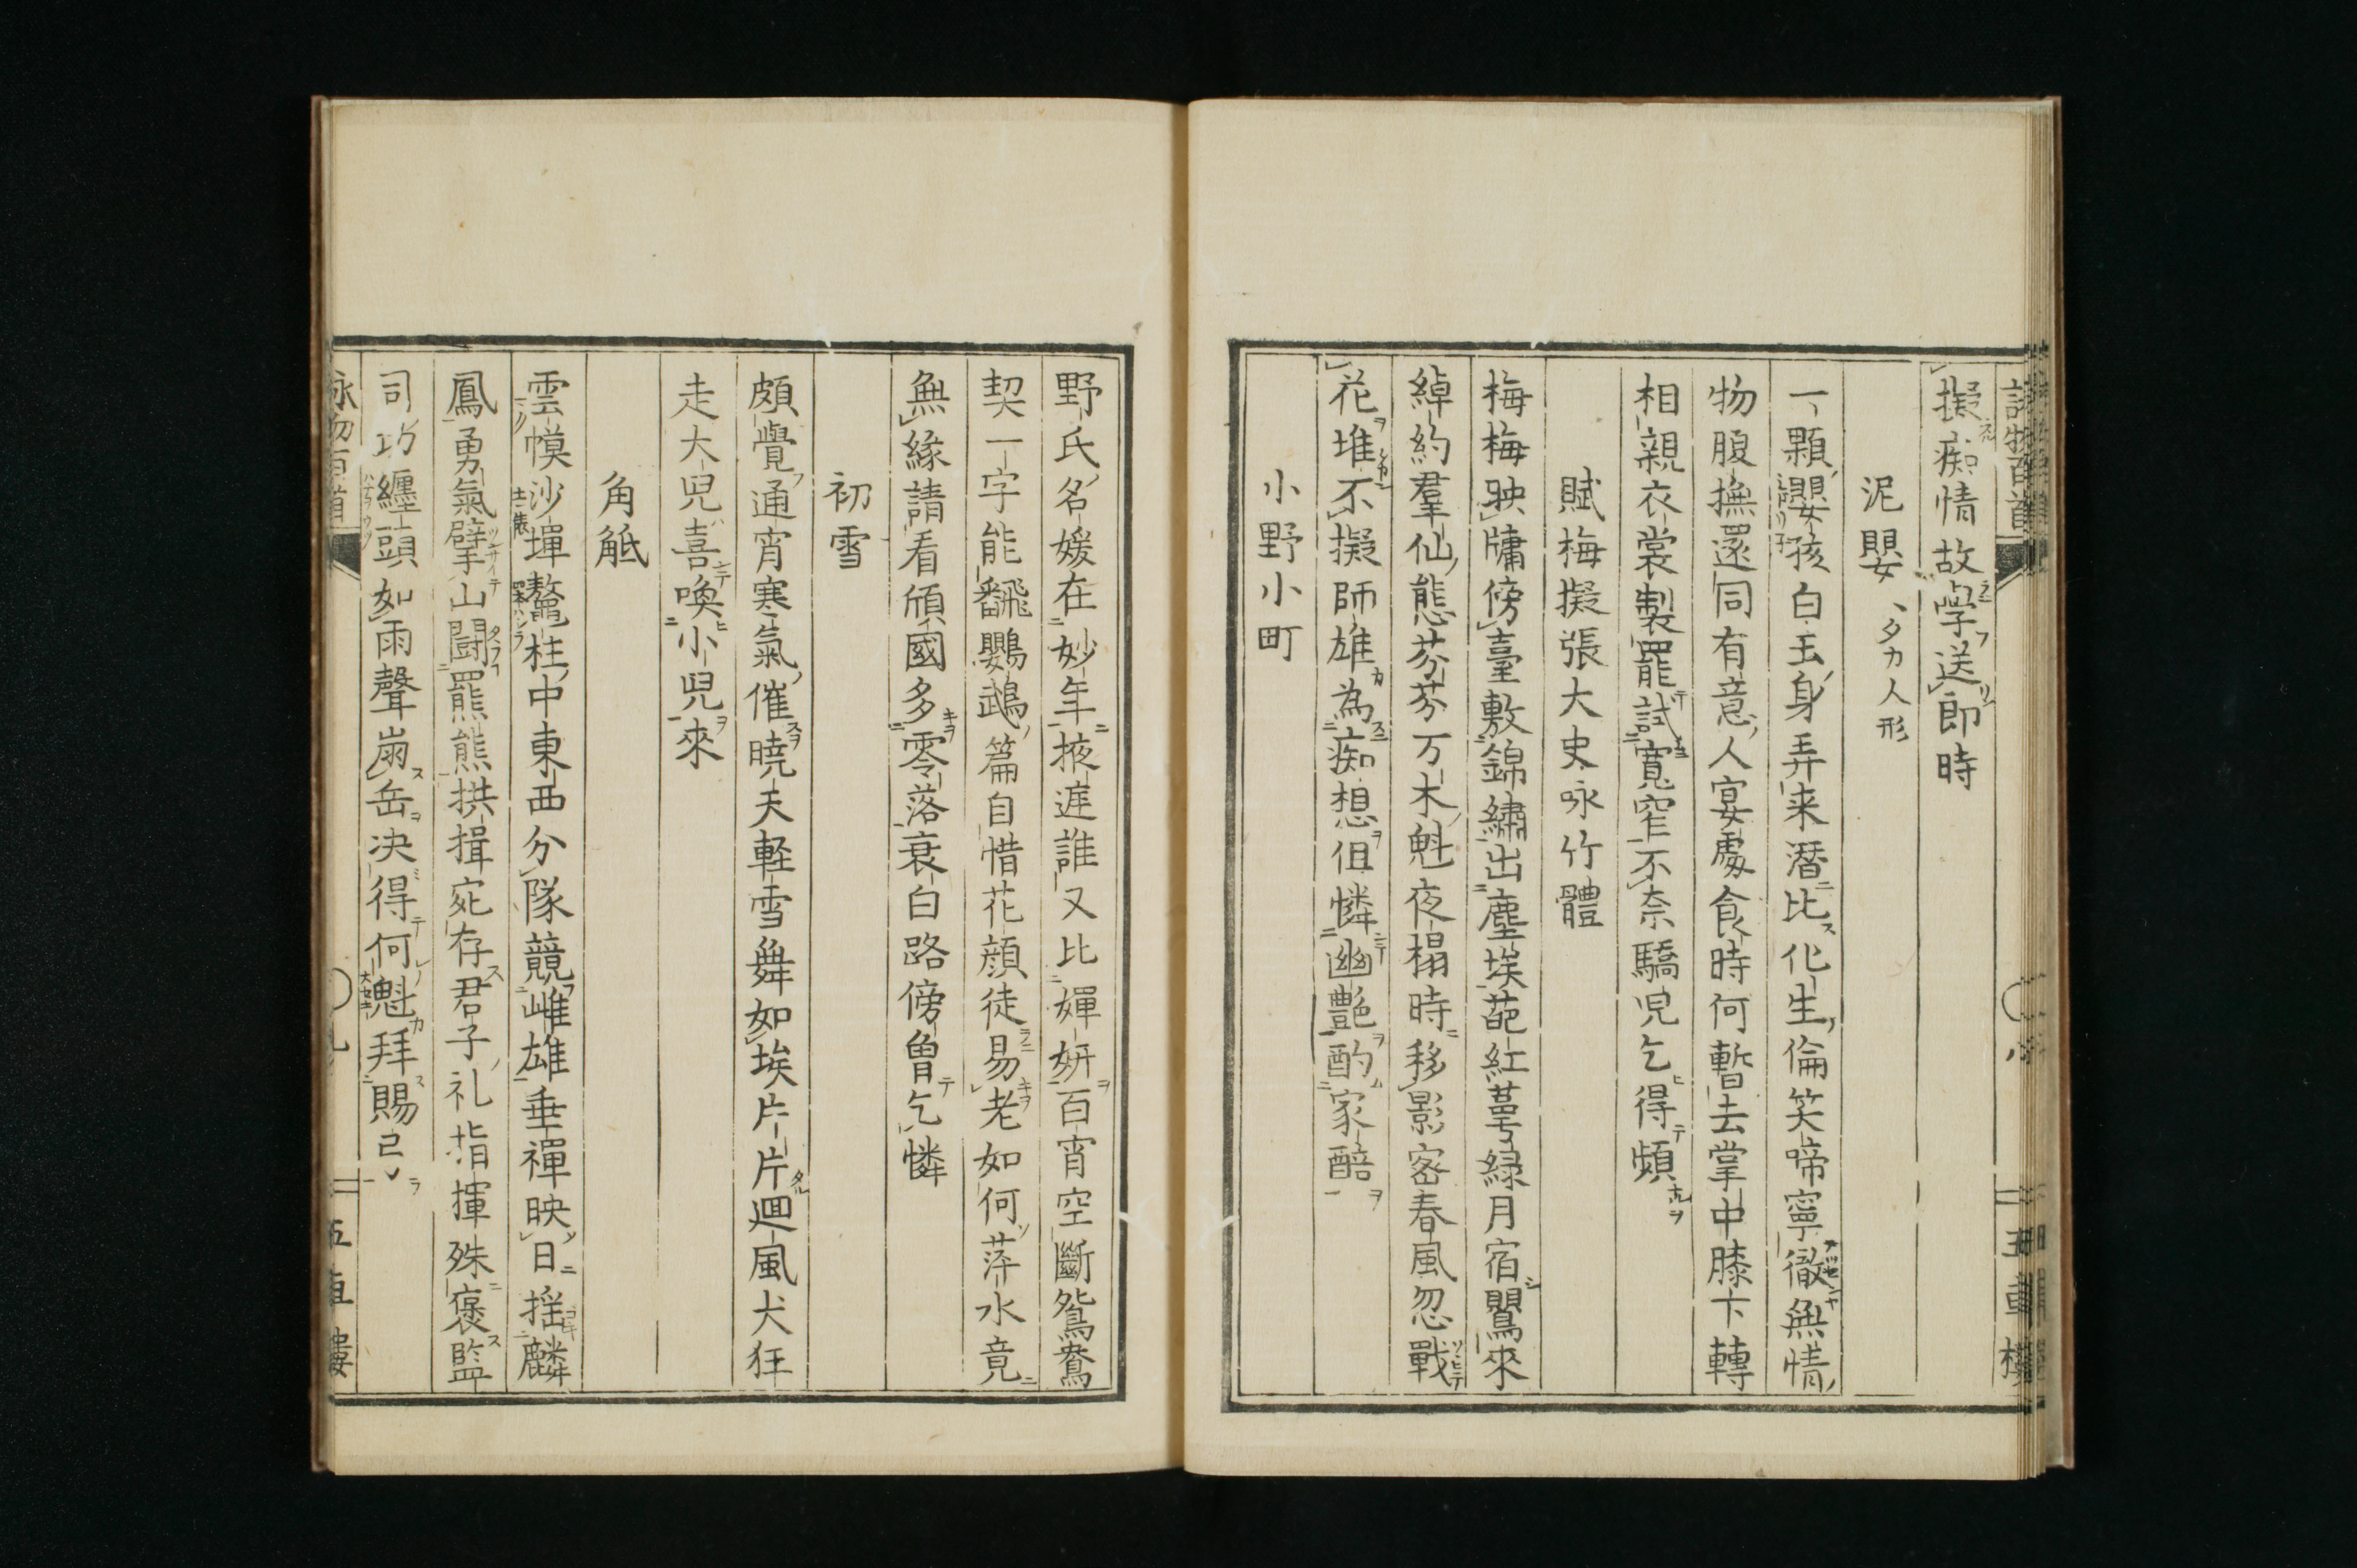 擬痴情故學送即時
泥嬰、タカ人形
一顆嬰孩白玉身弄来潛比化生倫笑啼寧徹無情
物腹撫還同有意人宴處食時何暫去掌中膝下轉
相親衣裳製罷試寬窄不奈驕児乞得頻
賦梅擬張大史咏竹體
梅梅映牗傍臺敷錦繡出塵埃葩紅萼緑月宿鸎來
綽約羣仙態芬芬万木魁夜榻時移影窓春風忽戰
花堆不擬師雄為痴想但憐幽艶酌家醅
小野小町
野氏名媛在妙年掖庭誰又比嬋妍百宵空斷鴛鴦
契一字能飜鸚鵡篇自惜花顔徒易老如何萍水竟
無緣請看傾國多零落衰白路傍曽乞憐
初雪
頗覺通宵寒氣催曉天軽雪舞如埃片片廻風犬狂
走大児喜喚小児來
角觝
雲幙沙墠鼇柱中東西分隊競雌雄垂襌映日揺麟
鳳勇氣擘山闘羆熊拱揖宛存君子礼指揮殊褒監
司功纏頭如雨聲崩岳决得何魁拜賜已
詠物百首
五車樓